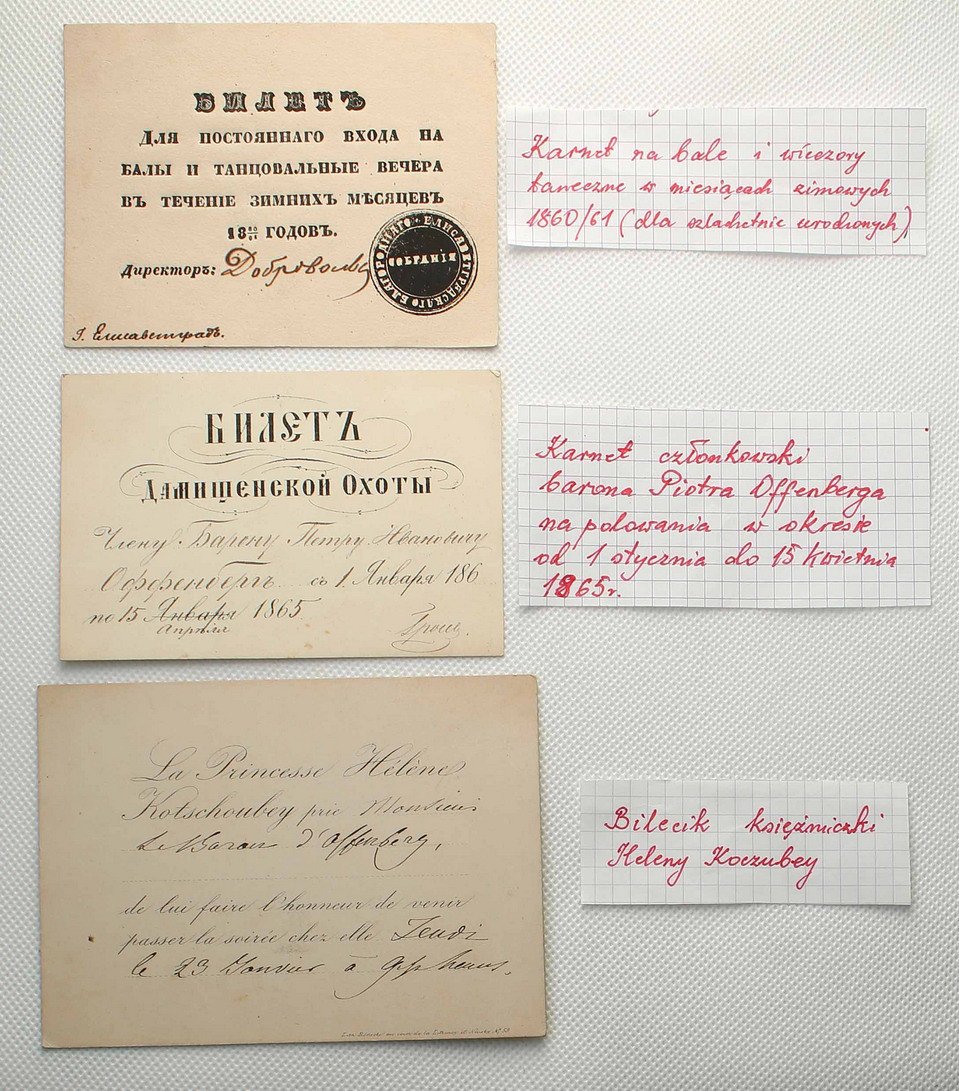 БИЛЕТЪ
Для постояннаго входа на
балы и танцовальные вечера
въ теченіе зимнихъ мѣсяцевъ
18 60/61 годовъ.
Директоръ: Добровольс
ЕЛИСАВЕТГРАДСКАГО БЛАГОРОДНАГО
СОБРАНІЯ
Г. Елисаветградъ.
Karnet na bale i wieczory
taneczne w miesiącach zimowych
1860/61 (dla szlachetnie urodzonych)
БИЛЕТЪ
Дамищенской Охоты
Члену: Барону Петру Ивановичу
Оффенбергъ съ 1. Января 186
по 15 Января 1865.
Апрѣля
Karnet członkowski
barona Piotra Offenberga
na polowania w okresie
od 1 stycznia do 15 kwietnia
1865r.
La Princesse Hélène
Kotschoubey prie Monsieur
le Baron d'Offenberg,
de lui faire l'honneur de venir
passer la soirée chez elle Jeudi
le 23 Janvier à 9½ heures.
Bilecik księżniczki
Heleny Koczubey